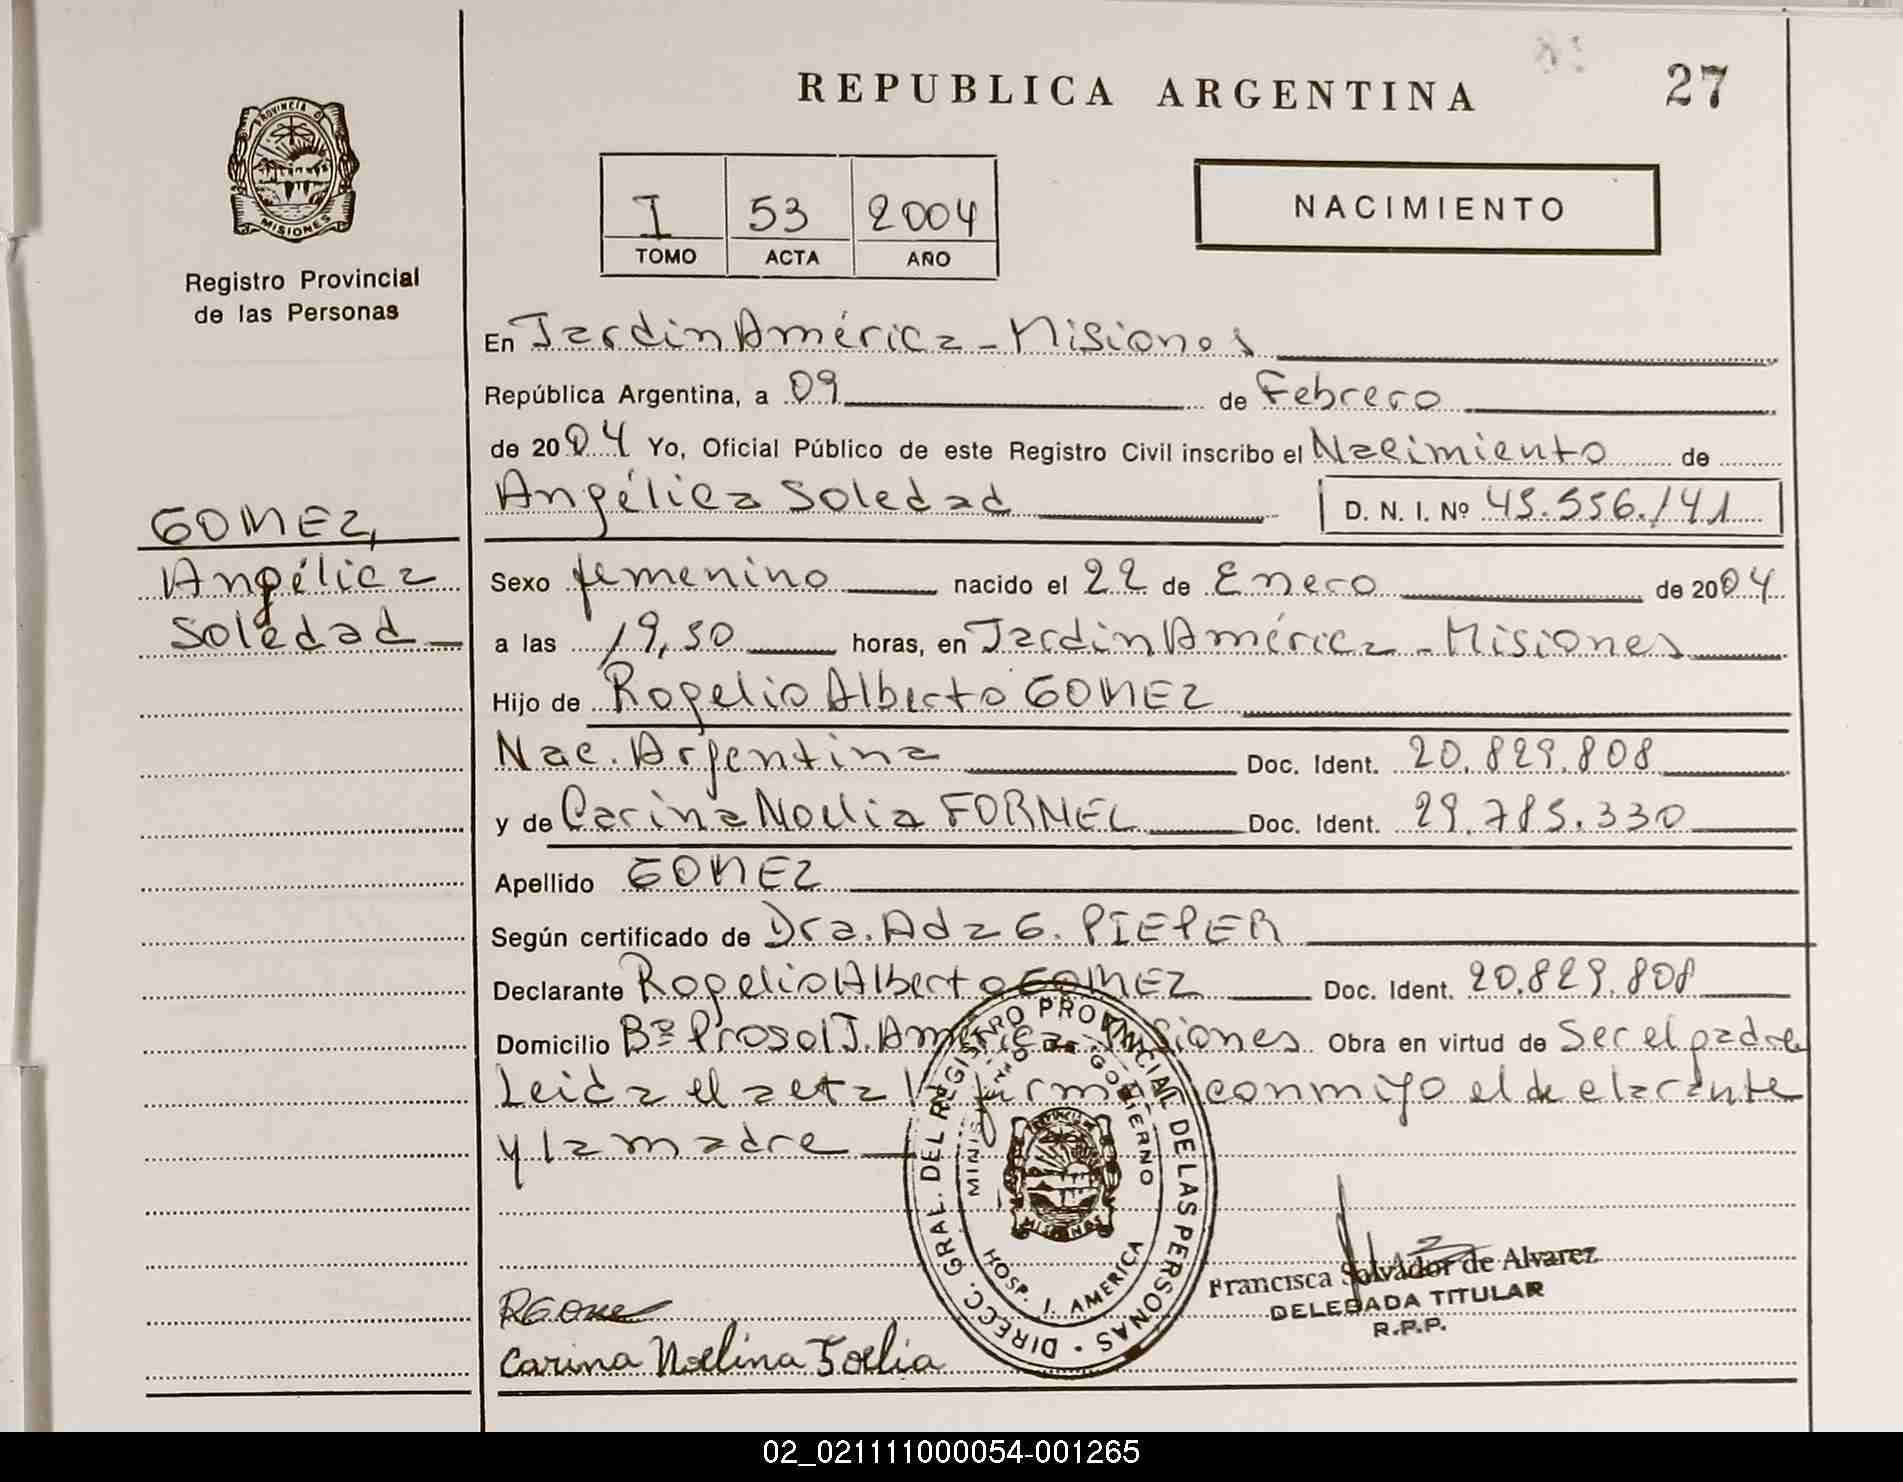 REPUBLICA ARGENTINA
27
PROVINCIA DE
MISIONES
Registro Provincial
de las Personas
I 53 2004
TOMO ACTA AÑO
NACIMIENTO
En Jardin América - Misiones
República Argentina, a 09 de Febrero
de 2004 Yo, Oficial Público de este Registro Civil inscribo el Nacimiento de
Angélica Soledad D. N. I. Nº 45.556.141
GOMEZ,
Angélica
Soledad
Sexo femenino nacido el 22 de Enero de 2004
a las 19,30 horas, en Jardin América - Misiones
Hijo de Rogelio Alberto GOMEZ
Nac. Argentina Doc. Ident. 20.829.808
y de Carina Noelia FORNEL Doc. Ident. 29.785.330
Apellido GOMEZ
Según certificado de Dra. Ada G. PIEPER
Declarante Rogelio Alberto GOMEZ Doc. Ident. 20.829.808
Domicilio Bº Prosol J. América - Misiones Obra en virtud de Ser el padre
Leida el acta la firman conmigo el declarante
y la madre
DIRECC. GRAL. DEL REGISTRO PROVINCIAL DE LAS PERSONAS
MINISTERIO DE GOBIERNO
MISIONES
HOSP. J. AMERICA
Francisca Salvador de Alvarez
DELEGADA TITULAR
R.P.P.
RGome
Carina
02_021111000054-001265